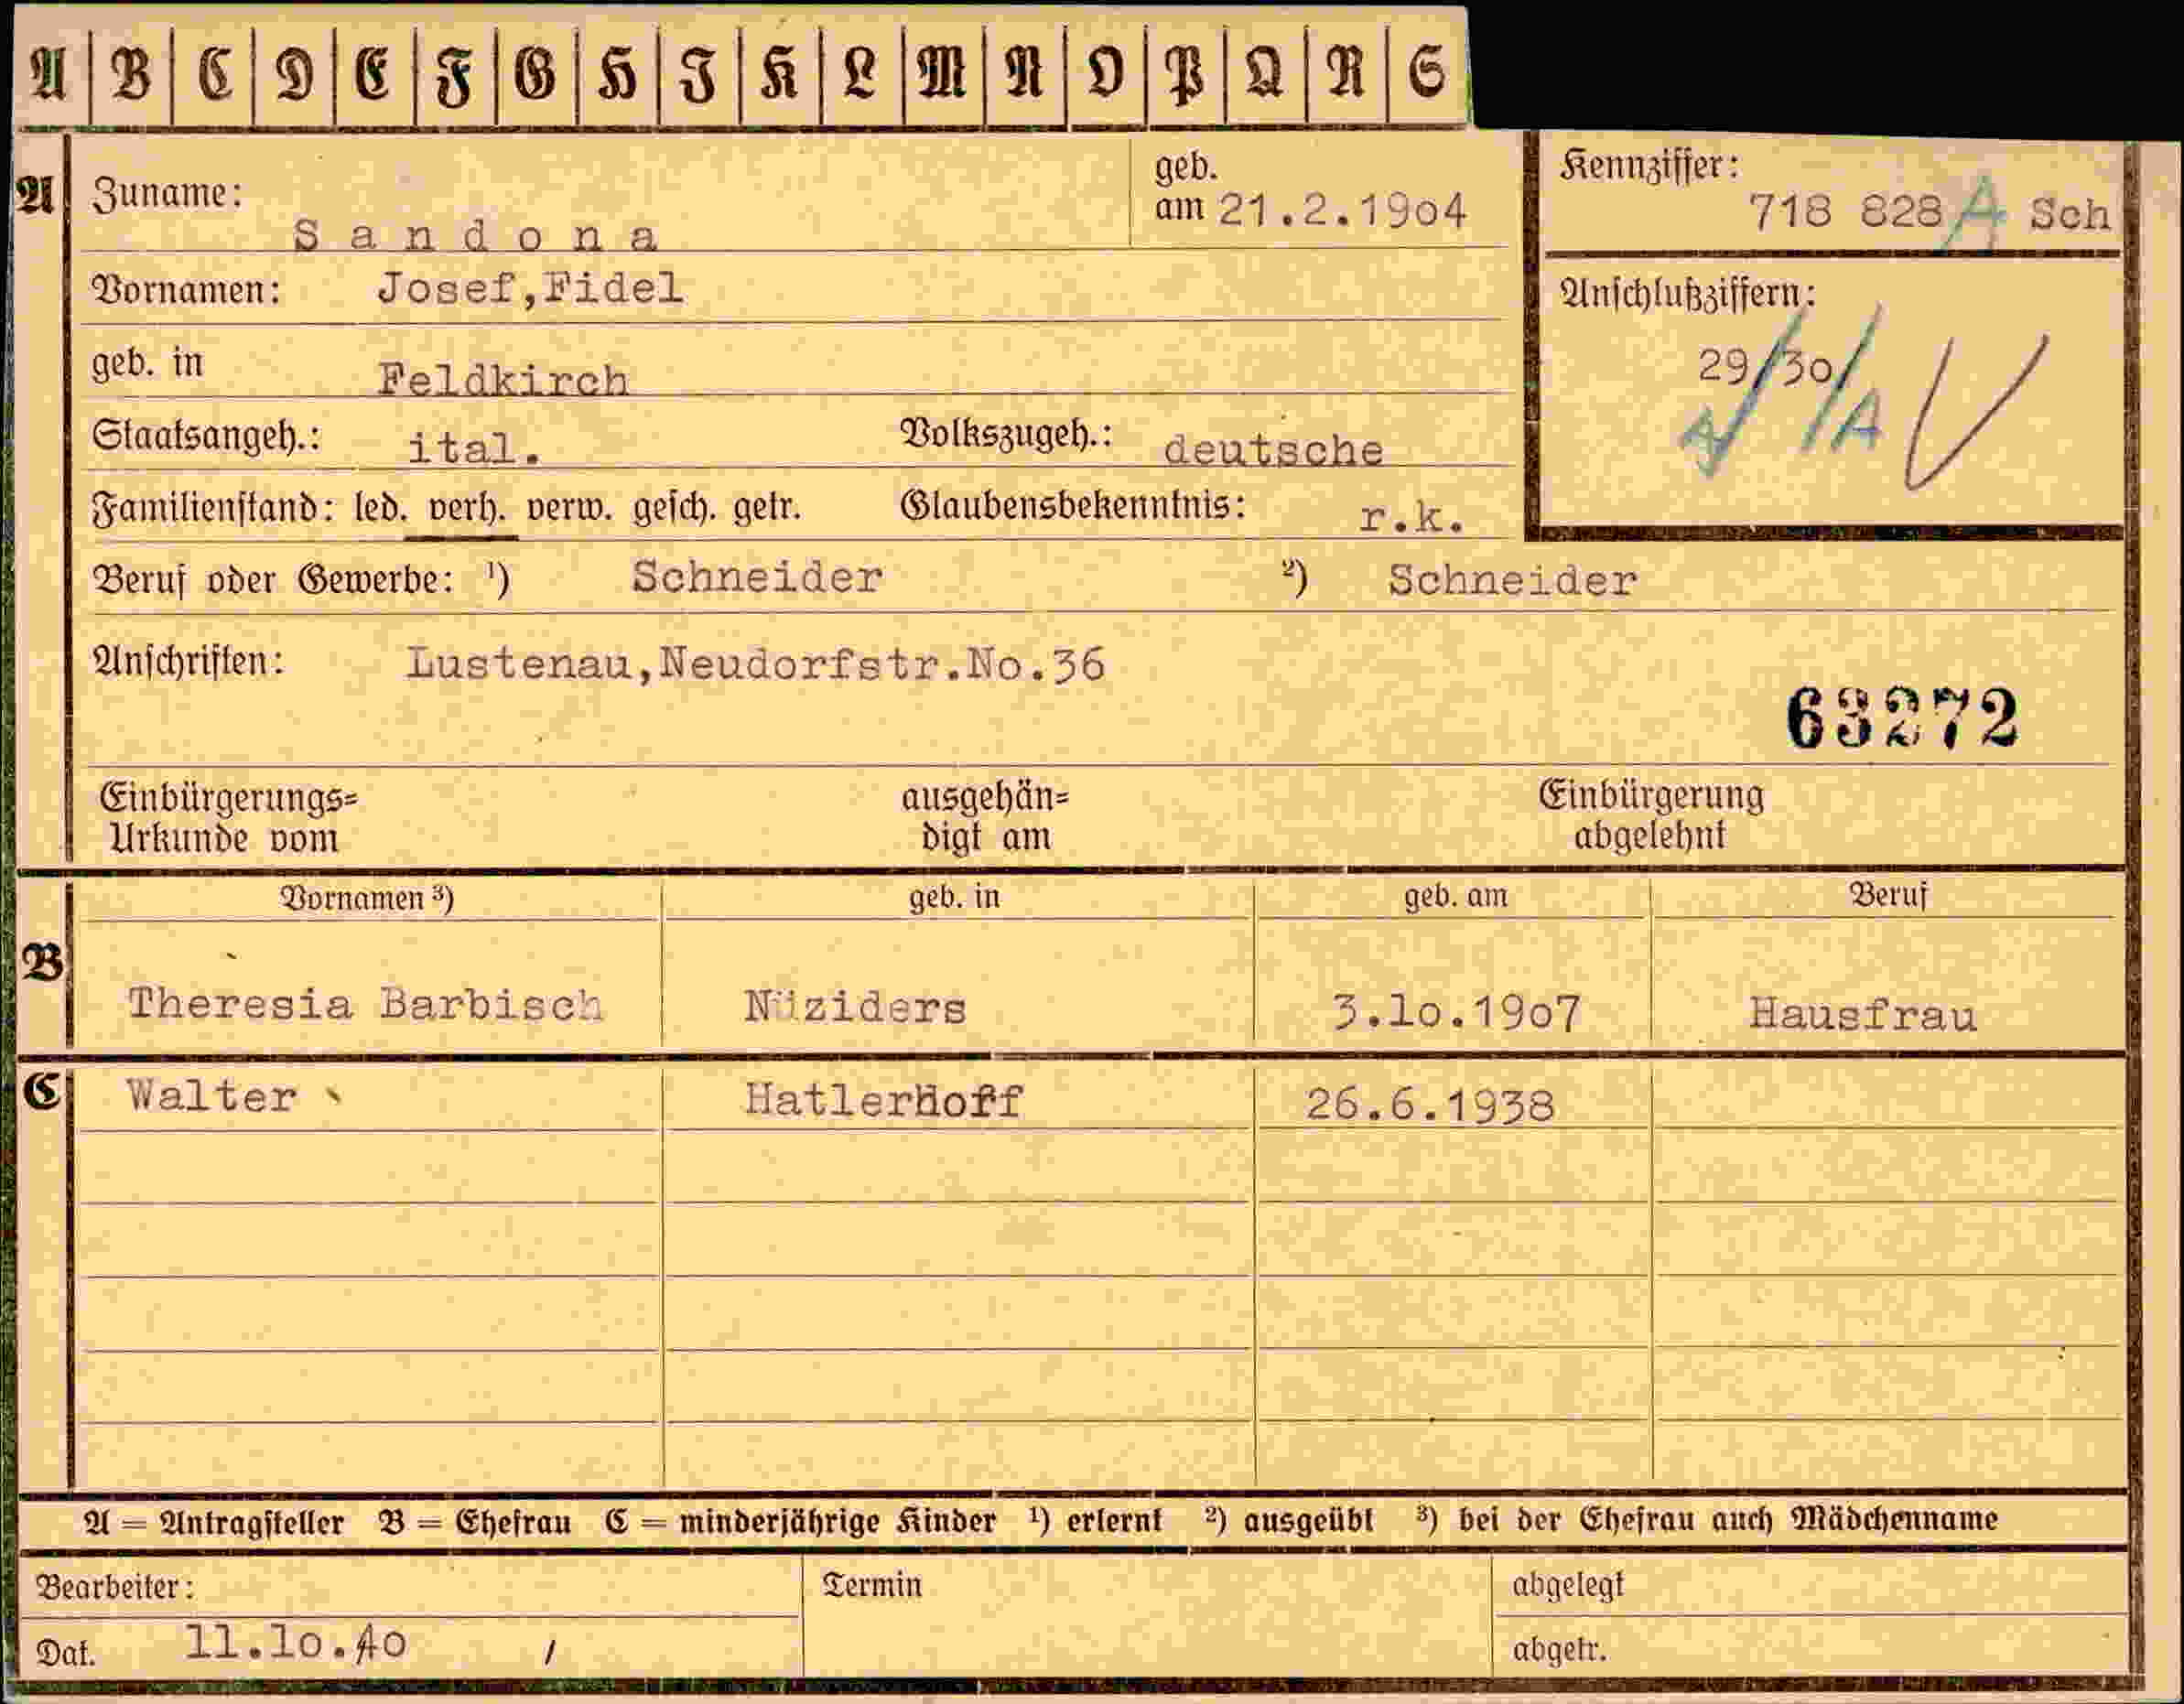 A B C D E F G H I K L M N O P Q R S
A Zuname: Sandona geb. am 21.2.19o4 Kennziffer: 718 828 A Sch
Vornamen: Josef,Fidel Anschlußziffern:
geb. in Feldkirch 29/30/
Staatsangeh.: ital. Volkszugeh.: deutsche /A
Familienstand: led. verh. verw. gesch. getr. Glaubensbekenntnis: r.k.
Beruf oder Gewerbe: ¹) Schneider ²) Schneider
Anschriften: Lustenau,Neudorfstr.No.36
63272
Einbürgerungs= ausgehän= Einbürgerung
Urkunde vom digt am abgelehnt
Vornamen ³) geb. in geb. am Beruf
B Theresia Barbisch Nüziders 3.1o.19o7 Hausfrau
C Walter Hatlerdorf 26.6.1938
A = Antragsteller B = Ehefrau C = minderjährige Kinder ¹) erlernt ²) ausgeübt ³) bei der Ehefrau auch Mädchenname
Bearbeiter: Termin abgelegt
Dat. 11.1o.4o abgetr.